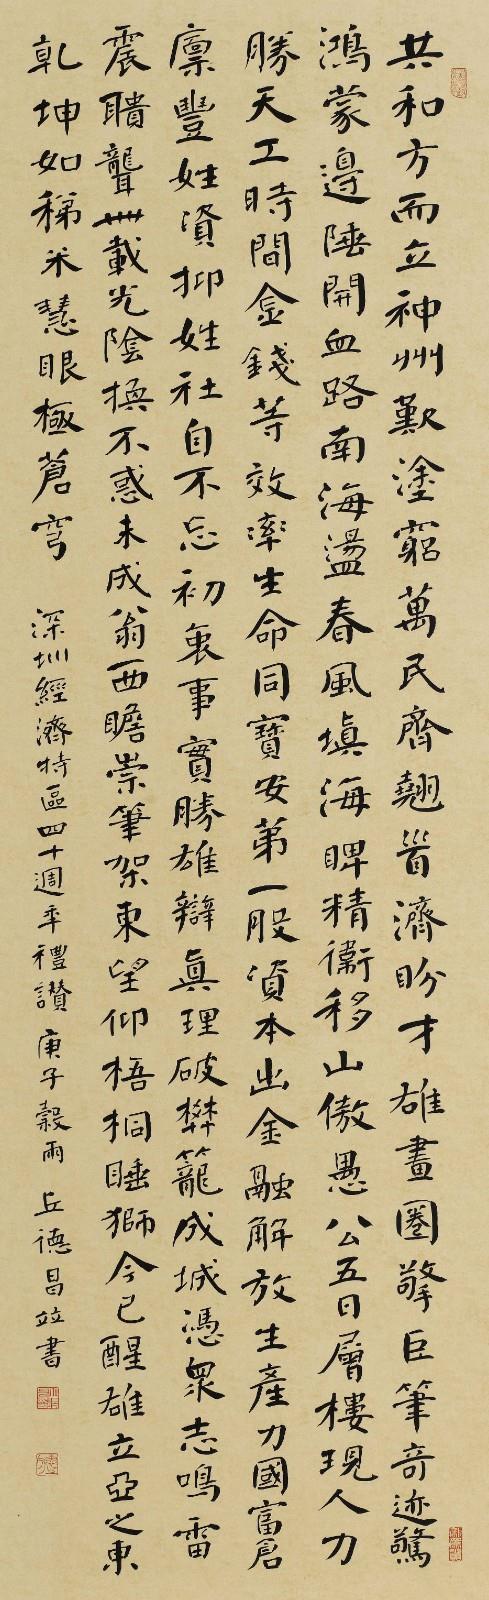 共和方而立神州歎塗窮萬民齊翹首濟盼才雄畫圈擎巨筆奇迹驚
鴻蒙邊陲開血路南海盪春風填海睥精衛移山傲愚公五日層樓現人力
勝天工時間金錢等效率生命同寶安第一股資本出金融解放生產力國富倉
廩豐姓資抑姓社自不忘初衷事實勝雄辯真理破樊籠成城憑衆志鳴雷
震聵聾卌載光陰換不惑未成翁西瞻崇筆架東望仰梧桐睡獅今已醒雄立亞之東
乾坤如稊米慧眼極蒼穹
深圳經濟特區四十週年禮讚 庚子穀雨 丘德昌竝書